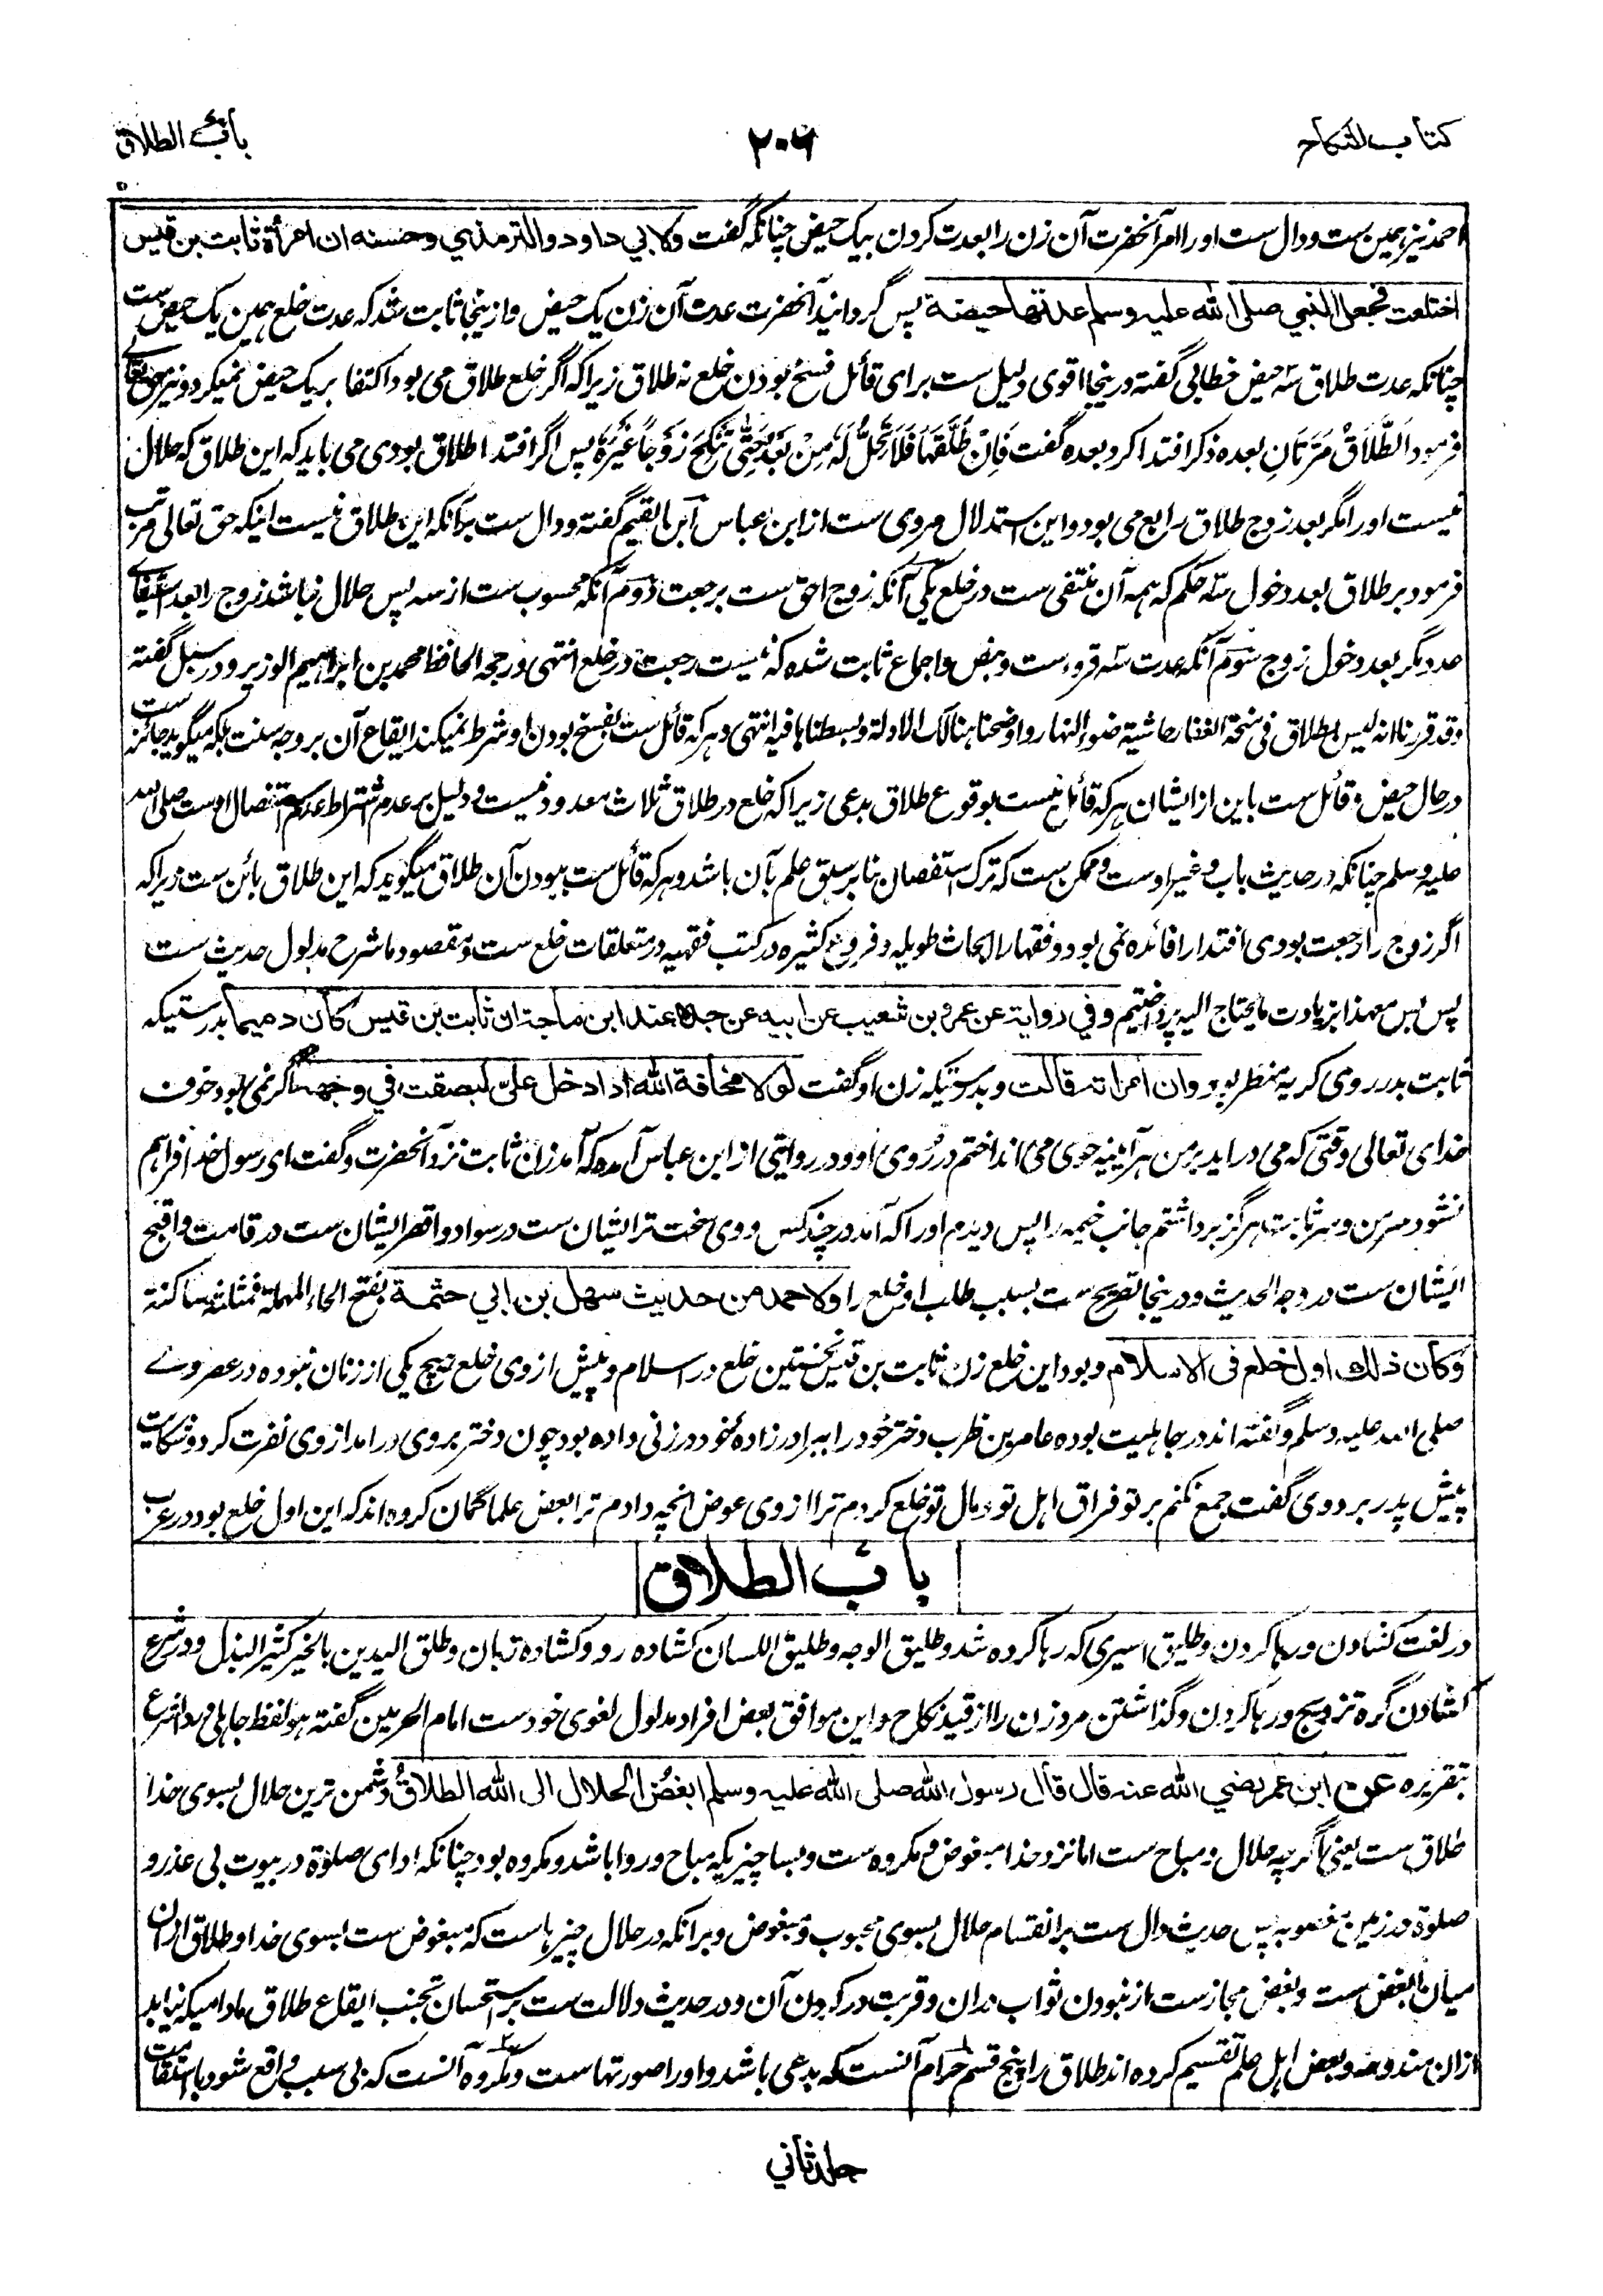 کتاب النکاح
۲۰۶
باب الطلاق
احمد نیز همین ست و دال ست اورا امر آنحضرت آن زن را بعدت کردن بیک حیض چنانکه گفت ولابي داود والترمذي وحسنه ان امرأة ثابت بن قيس
اختلعت فجعل النبي صلى الله عليه وسلم عدتها حيضة پس گردانید آنحضرت عدت آن زن یک حیض و ازینجا ثابت شد که عدت خلع همین یک حیض ست
چنانکه عدت طلاق سه حیض خطابی گفته درینجا اقوی دلیل ست برای قائل فسخ بودن خلع نه طلاق زیرا که اگر خلع طلاق می بود اکتفا بر یک حیض نمیکرد و نیز حق تعالی
فرمود اَلطَّلَاقُ مَرَّتَانِ بعده ذکر افتدا کرد بعده گفت فَاِنْ طَلَّقَهَا فَلَا تَحِلُّ لَهٗ مِنْ بَعْدُ حَتّٰى تَنْكِحَ زَوْجاً غَيْرَهٗ پس اگر افتدا طلاق بودی می باید که این طلاق که حلال
نیست اورا مگر بعد زوج طلاق رابع می بود و این استدلال مروی ست از ابن عباس ابن القیم گفته و دال ست برآنکه این طلاق نیست اینکه حق تعالی مرتب
فرمود بر طلاق بعد دخول سه حکم که همه آن منتفی ست در خلع یکی آنکه زوج احق ست برجعت دوم آنکه محسوب ست از سه پس حلال نباشد زوج را بعد استیفای
عدد مگر بعد دخول زوج سوم آنکه عدت سه قروء ست و بنص و اجماع ثابت شده که نیست رجعت در خلع انتهی و رجحه الحافظ محمد بن ابراهیم الوزیر و در سبل گفته
وقد قررنا انه لیس بطلاق فی منحة الغفار حاشیة ضوء النهار و اوضحنا هنالک الادلة و بسطناها فیه انتهی و هر که قائل ست بفسخ بودن او شرط نمیکند ایقاع آن بر وجه سنت بلکه میگوید جائز ست
در حال حیض و قائل ست باین از ایشان هر که قائل نیست بوقوع طلاق بدعی زیرا که خلع در طلاق ثلاث معدود نیست و دلیل بر عدم اشتراط عدم استفصال اوست صلی الله
علیه وسلم چنانکه در حدیث باب و غیر اوست و ممکن ست که ترک استفصال بنابر سبق علم بآن باشد و هر که قائل ست ببودن آن طلاق میگوید که این طلاق بائن ست زیرا که
اگر زوج را رجعت بودی افتدا را فائده نمی بود و فقها را ابحاث طویله و فروع کثیره در کتب فقهیه در متعلقات خلع ست و مقصود ما شرح مدلول حدیث ست
پس بس معهذا بزیادت ما یحتاج الیه پرداختیم وفي رواية عن عمرو بن شعيب عن ابيه عن جده عند ابن ماجة ان ثابت بن قيس كان دميما بدرستیکه
ثابت بدرروی کریه منظر بود وان امراته قالت و بدرستیکه زن او گفت لولا مخافة الله اذا دخل عليّ لبصقت في وجهه اگر نمی بود خوف
خدای تعالی وقتی که می دراید بر من هر آئینه خوی می انداختم در روی او و در روایتی از ابن عباس آمده که آمد زن ثابت نزد آنحضرت و گفت ای رسول خدا فراهم
نشود سر من و سر ثابت هرگز برداشتم جانب خیمه را پس دیدم اورا که آمد در چند کس و وی سخت تر ایشان ست در سواد و اقصر ایشان ست در قامت و اقبح
ایشان ست در وجه الحدیث و درینجا تصریح ست بسبب طلب او خلع را ولاحمد من حديث سهل بن ابي حثمة بفتح الحاء المهملة فمثلثه ساکنة
وكان ذلك اول خلع فى الاسلام و بود این خلع زن ثابت بن قیس نخستین خلع در اسلام و پیش از وی خلع هیچ یکی از زنان نبوده در عصر وے
صلی الله علیه وسلم و گفته اند در جاهلیت بوده عامر بن ظرب دختر خود را ببرادر زادهٔ خود در زنی داده بود چون دختر بروی درامد از وی نفرت کرد و شکایت
پیش پدر برد وی گفت جمع نکنم بر تو فراق اهل تو و مال تو خلع کردم ترا از وی عوض انچه دادم ترا بعض علما گمان کرده اند که این اول خلع بود در عرب
باب الطلاق
در لغت کشادن و رها کردن و طلیق اسیری که رها کرده شد و طلیق الوجه و طلیق اللسان کشاده رو و کشاده زبان و طلق الیدین بالخیر کثیر البذل و در شرع
کشادن گره تزویج و رها کردن و گذاشتن مرد زن را از قید نکاح و این موافق بعض افراد مدلول لغوی خود ست امام الحرمین گفته هو لفظ جاهلی ورد الشرع
بتقریره عن ابن عمر رضي الله عنه قال قال رسول الله صلى الله عليه وسلم ابغض الحلال الى الله الطلاقُ دشمن ترین حلال بسوی خدا
طلاق ست یعنی اگرچه حلال و مباح ست اما نزد خدا مبغوض و مکروه ست و بسا چیز یکه مباح و روا باشد و مکروه بود چنانکه ادای صلوٰة در بیوت بی عذر و
صلوٰة در زمین مغصوبه پس حدیث دال ست بر انقسام حلال بسوی محبوب و مبغوض و برانکه در حلال چیزهاست که مبغوض ست بسوی خدا و طلاق ازان
میان ابغض ست و بغض مجاز ست از نبودن ثواب دران و قربت در کردن آن و در حدیث دلالت ست بر استحسان تجنب ایقاع طلاق مادامیکه نیاید
ازان مندوحه و بعض اهل علم تقسیم کرده اند طلاق را پنج قسم حرام آنست که بدعی باشد و اورا صورتهاست و مکروه آنست که بی سبب واقع شود با استقامت
جلد ثاني